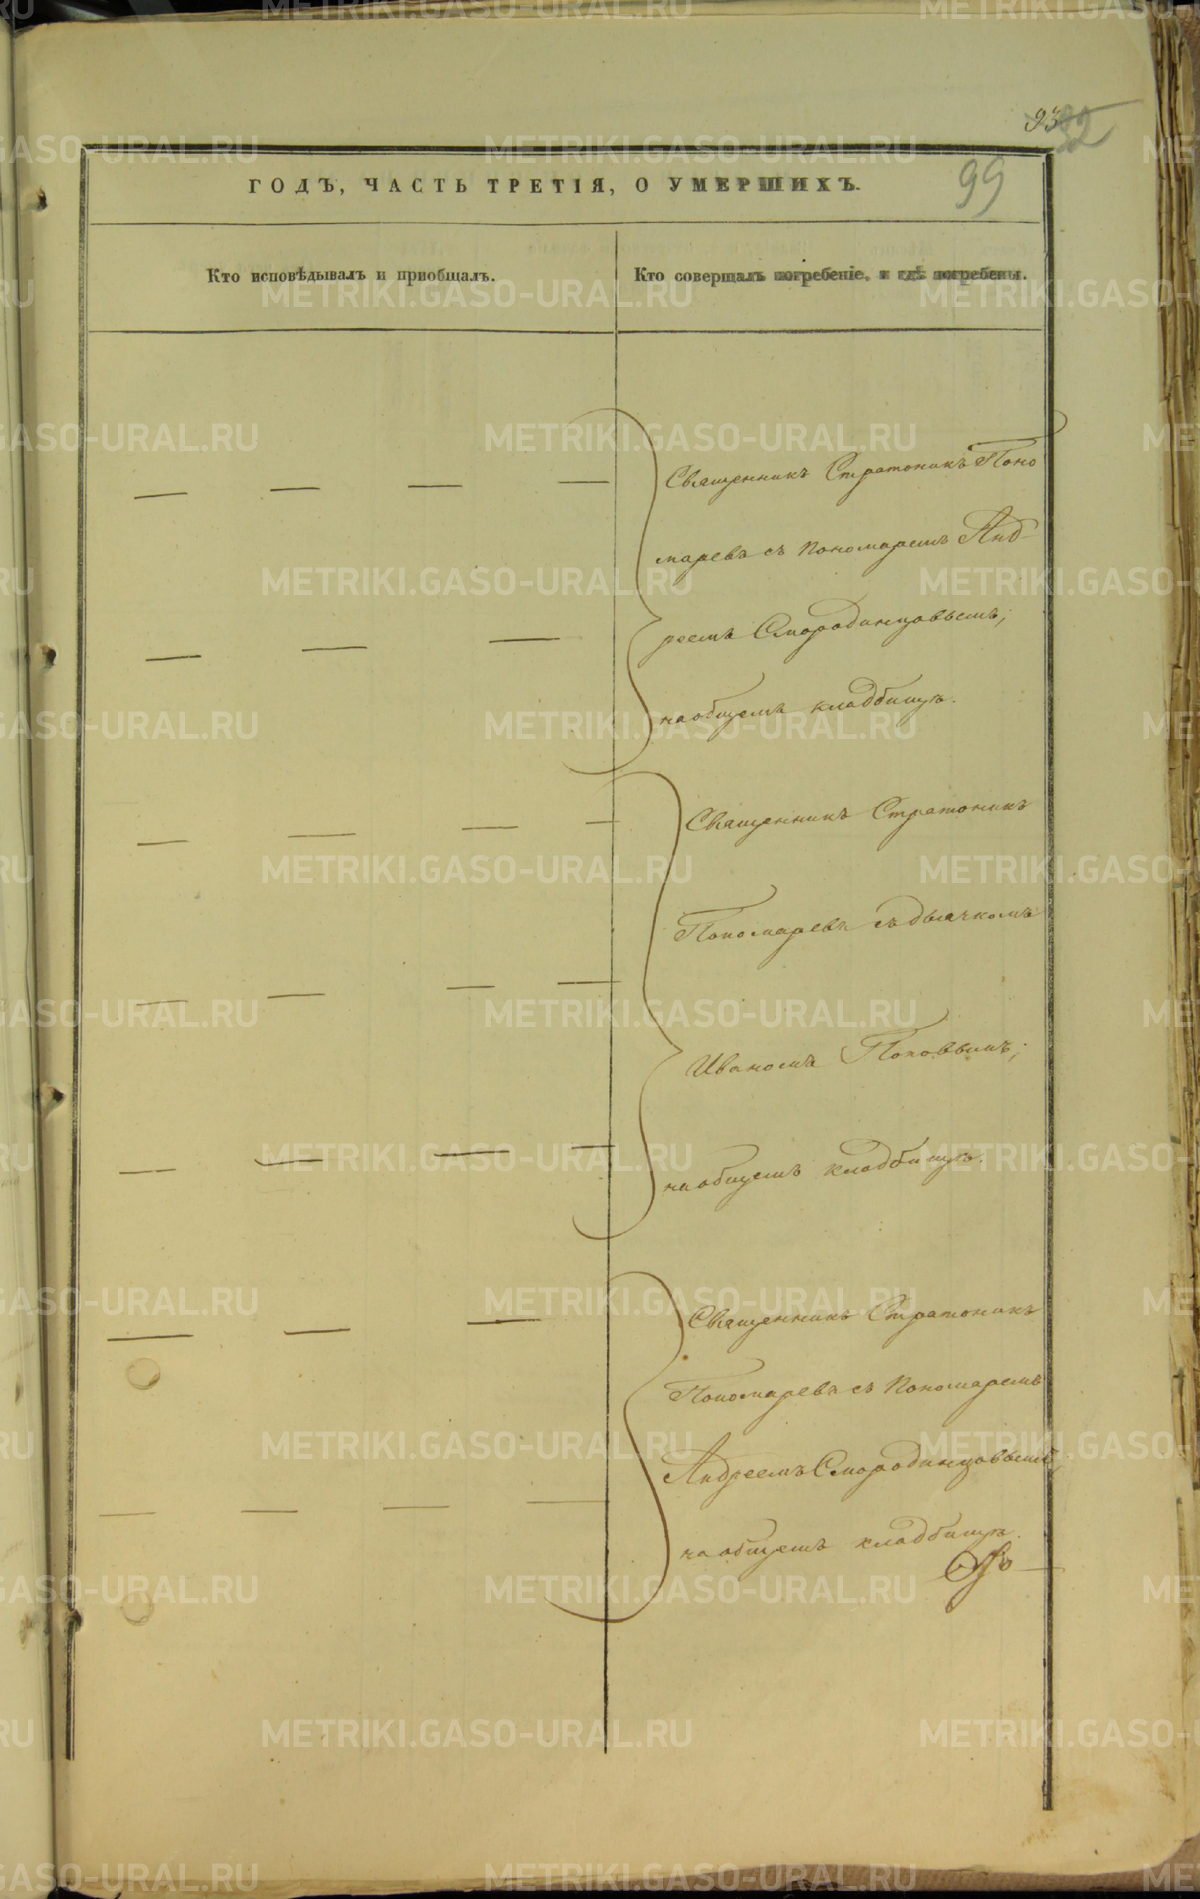 93
82
99
ГОДЪ, ЧАСТЬ ТРЕТІЯ, О УМЕРШИХЪ.
Кто исповѣдывалъ и пріобщалъ.
Кто совершалъ погребеніе, и гдѣ погребены.
Священникъ Стратоникъ Поно
маревъ съ пономаремъ Анд-
реемъ Смородинцовымъ;
на общемъ кладбищѣ.
Священникъ Стратоникъ
Пономаревъ съ дьячкомъ
Иваномъ Поповымъ;
на общемъ кладбищѣ.
Священникъ Стратоникъ
Пономаревъ съ пономаремъ
Андреемъ Смородинцовымъ,
на общемъ кладбищѣ.
METRIKI.GASO-URAL.RU